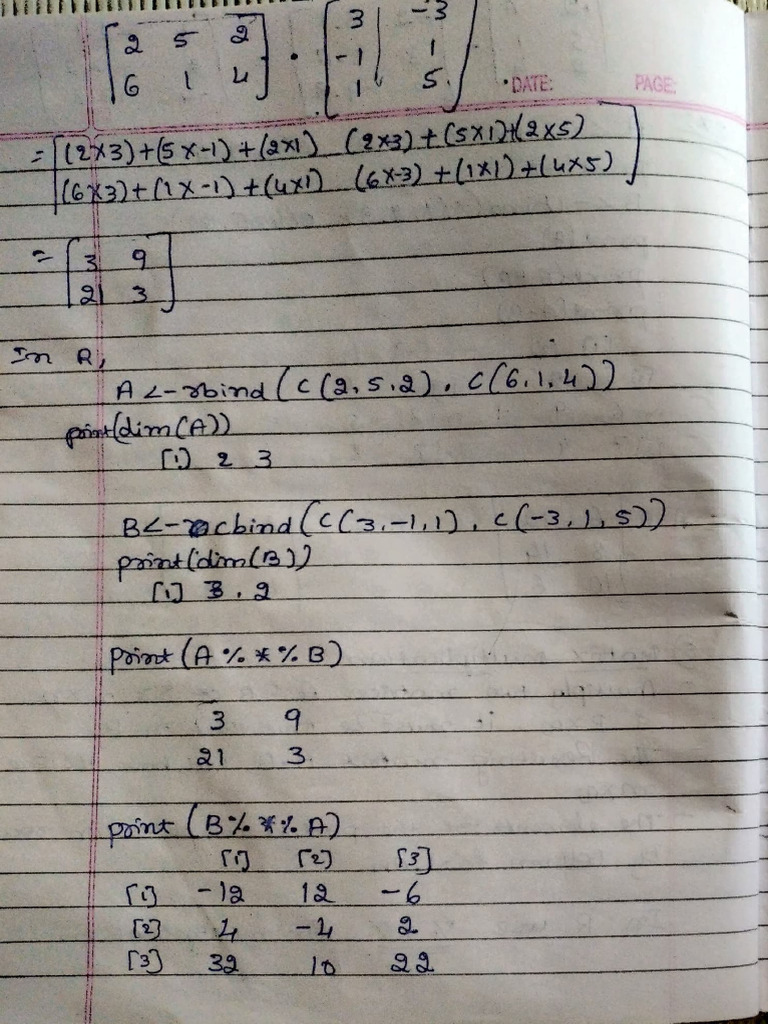 [2 5 2] . [3 -3]
[6 1 4] [-1 1]
[1 5]
DATE: PAGE:
= [(2x3)+(5x-1)+(2x1) (2x3)+(5x1)+(2x5)]
[(6x3)+(1x-1)+(4x1) (6x-3)+(1x1)+(4x5)]
= [3 9]
[21 3]
In R,
A <- rbind (c(2,5,2), c(6,1,4))
print(dim(A))
[1] 2 3
B <- cbind (c(3,-1,1), c(-3,1,5))
print(dim(B))
[1] 3, 2
print (A %*% B)
3 9
21 3
print (B %*% A)
[1] [2] [3]
[1] -12 12 -6
[2] 4 -4 2
[3] 32 10 22